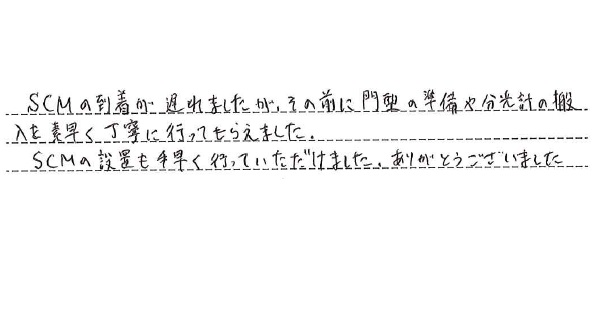 SCMの到着が遅れましたが、その前に門型の準備や分光計の搬
入を素早く丁寧に行ってもらえました。
SCMの設置も手早く行っていただけました、ありがとうございました